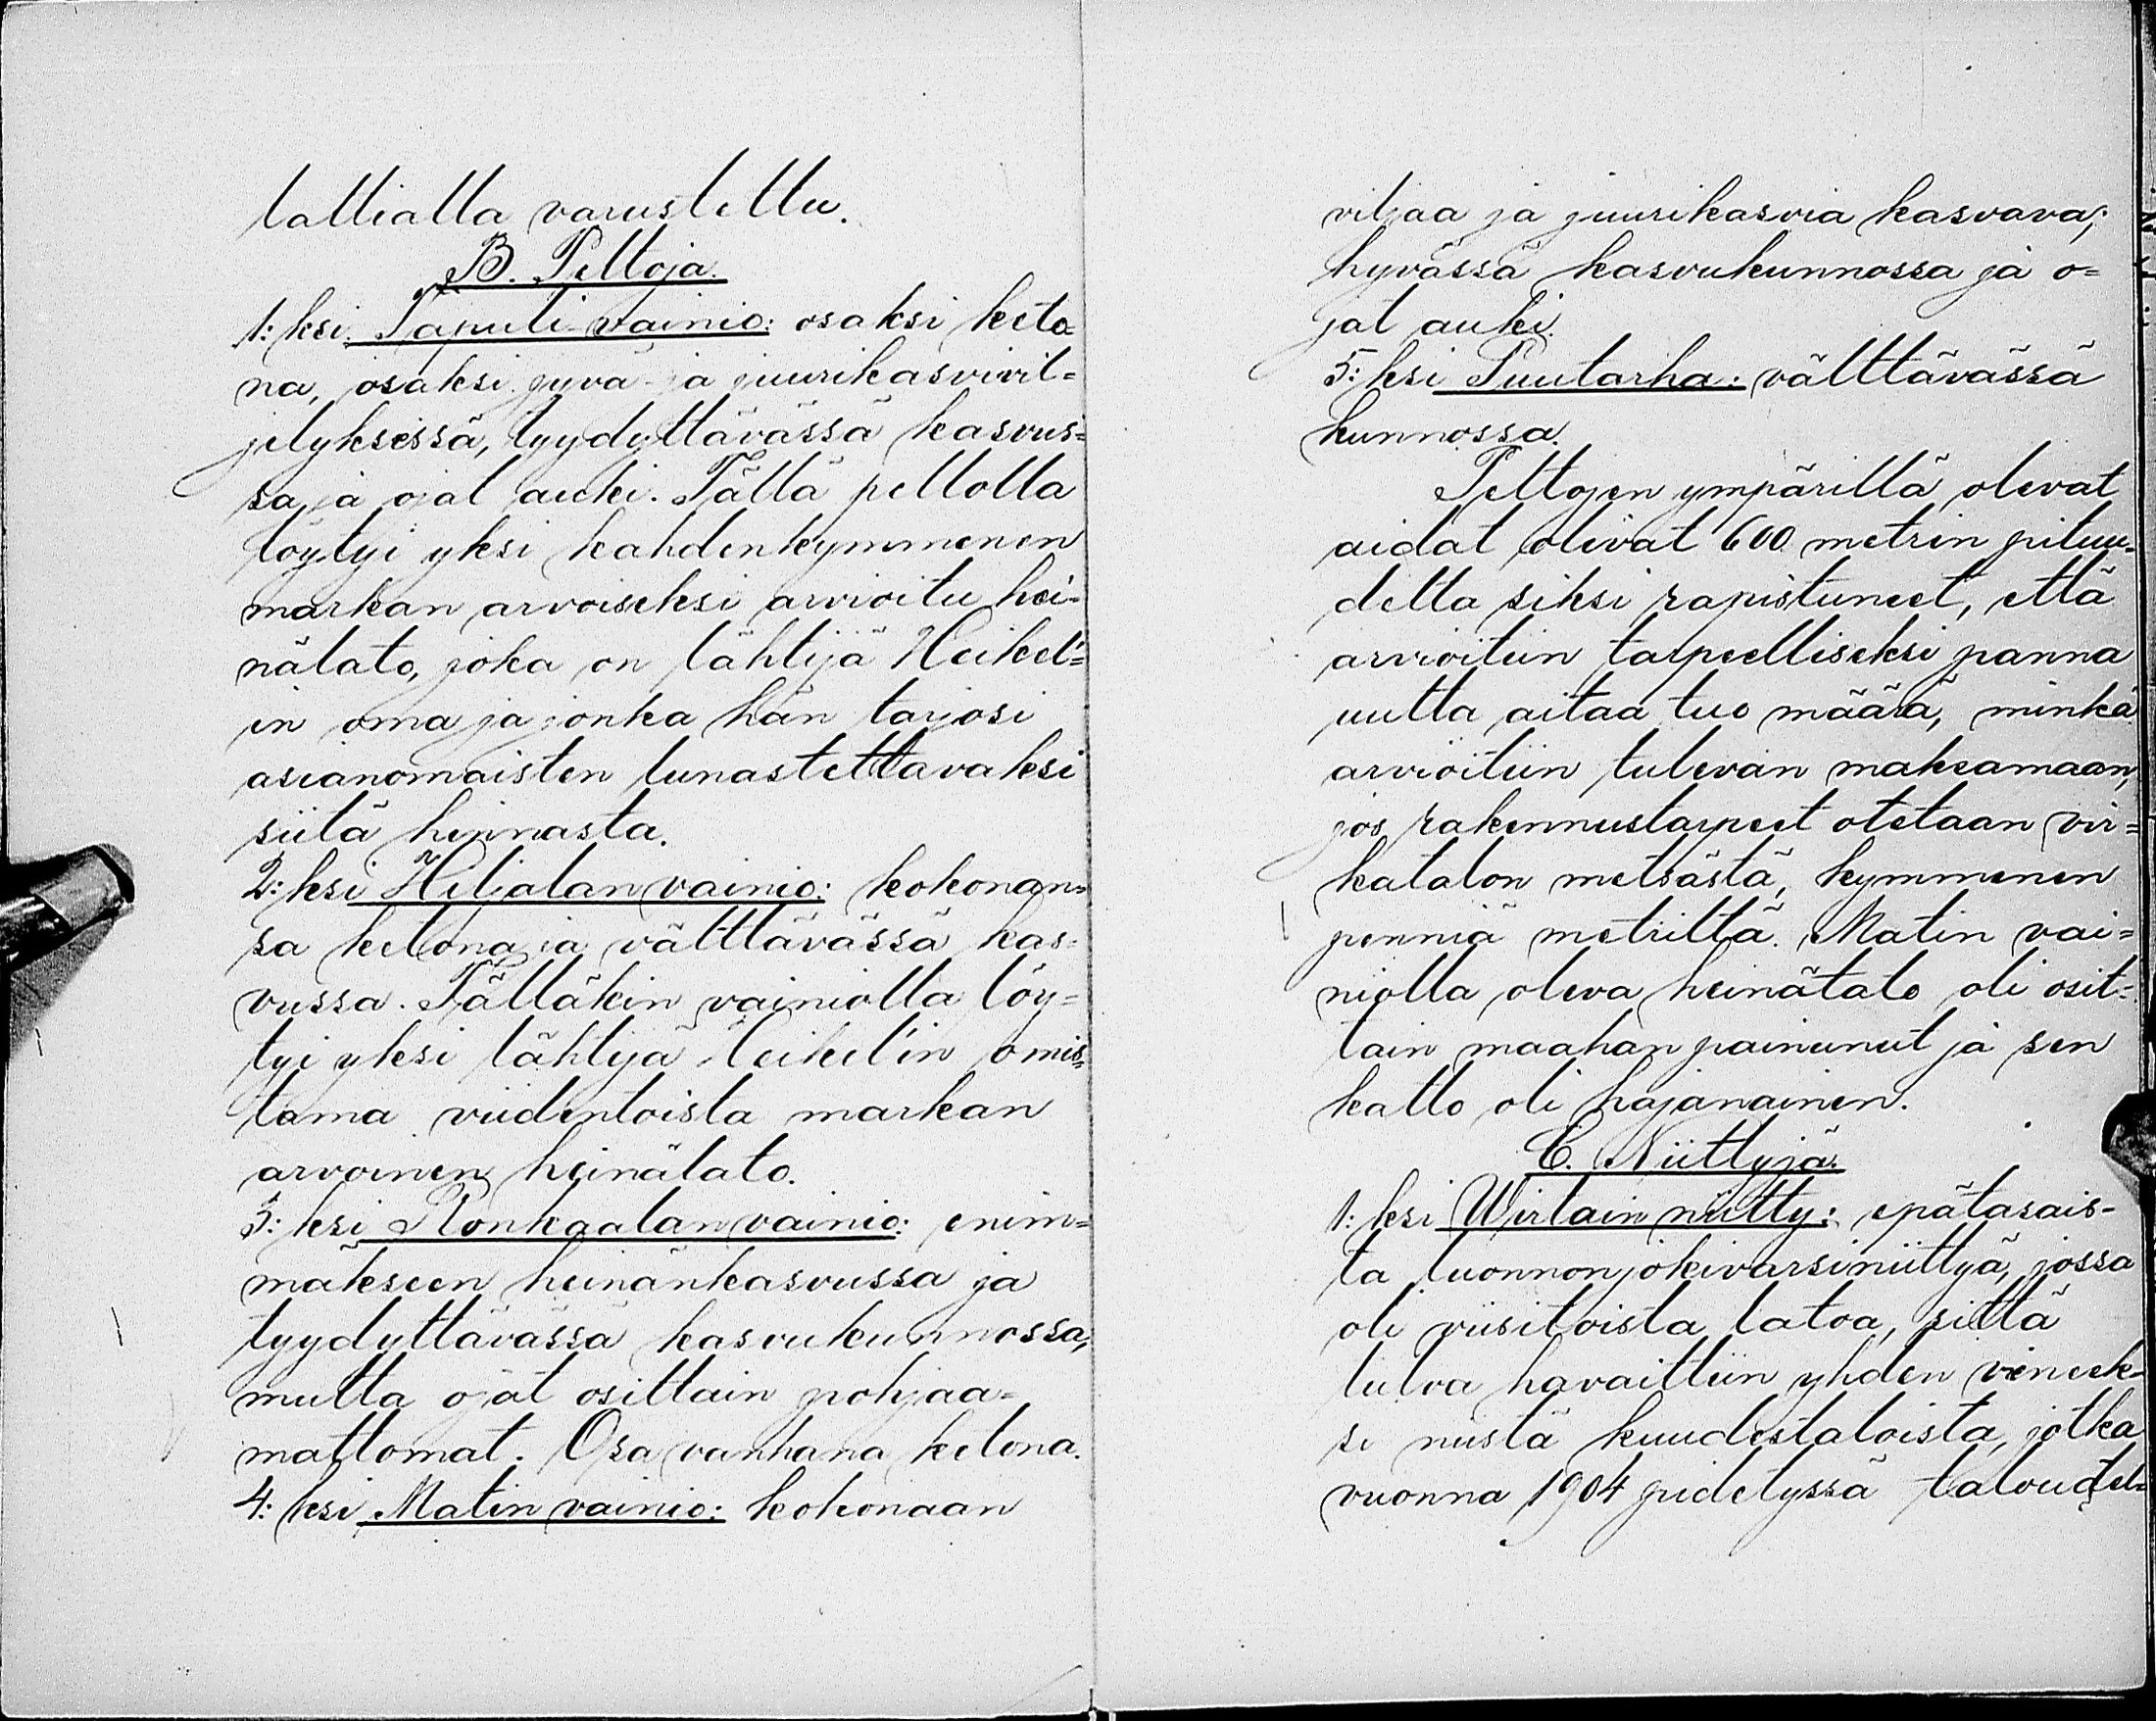 lattialla varustettu.
B. Peltoja.
1:ksi Taputi-vainio: osaksi keto-
na, osaksi jyvä- ja juurikasvivil=
jelyksessä, tyydyttävässä kasvus=
sa ja ojat auki. Tällä pellolla
löytyi yksi kahdenkymmenen
markan arvoiseksi arvioitu hei=
nälato, joka on lähtijä Heikel'=
in oma ja jonka hän tarjosi
asianomaisten lunastettavaksi
siitä hinnasta.
2:ksi Hiljalan vainio: kokonan=
sa ketona ja välttävässä kas=
vussa. Tälläkin vainiolla löy=
tyi yksi lähtijä Heikel'in omis=
tama viidentoista markan
arvoinen heinälato.
3:ksi Ronkaalan vainio: enim=
mäkseen heinänkasvussa ja
tyydyttävässä kasvukunnossa,
mutta ojat osittain pohjaa=
mattomat. Osa vanhana ketona.
4:ksi Matin vainio: kokonaan
viljaa ja juurikasvia kasvava;
hyvässä kasvukunnossa ja o=
jat auki.
5:ksi Puutarha: välttävässä
kunnossa.
Peltojen ympärillä olevat
aidat olivat 600 metrin pituu=
della siksi rapistuneet, että
arvioitiin tarpeelliseksi panna
uutta aitaa tuo määrä, minkä
arvioitiin tulevan maksamaan,
jos rakennustarpeet otetaan vir=
katalon metsästä, kymmenen
penniä metriltä. Matin vai=
niolla oleva heinälato oli osit=
tain maahan painunut ja sen
katto oli hajanainen.
C. Niittyjä.
1:ksi Wirlain niitty: epätasais-
ta luonnonjokivarsiniittyä, jossa
oli viisitoista latoa, sillä
tulva havaittiin yhden vieneek-
si niistä kuudestatoista, jotka
vuonna 1904 pidetyssä taloudel=